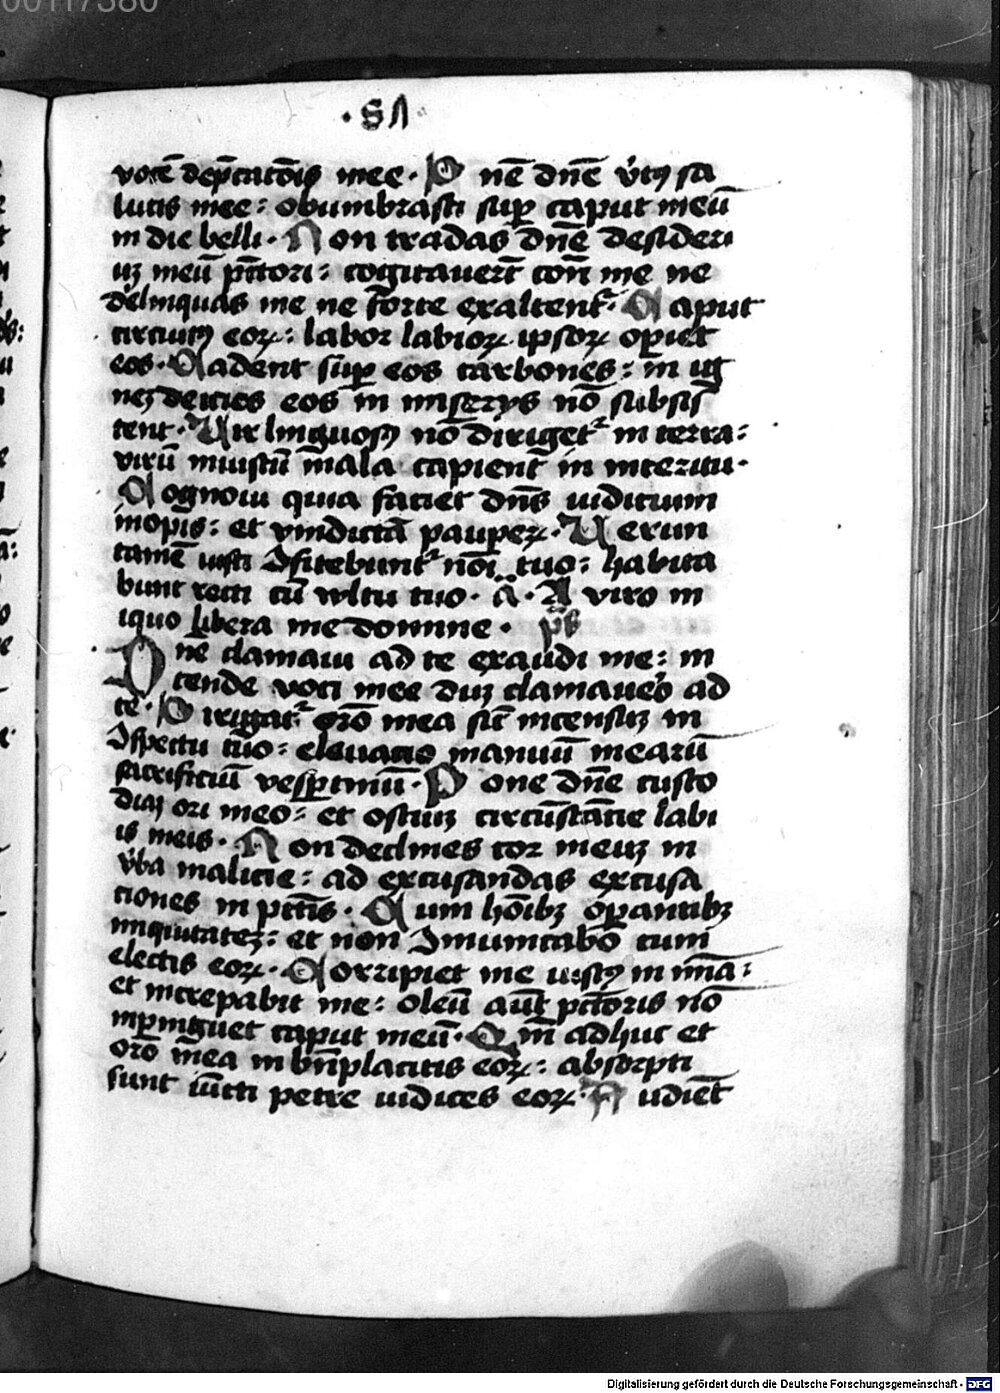 00117380
· SA ·
vocē dep̄catōis mee · D nē dnē v̓tꝯ sa
lutis mee : obumbrasti suꝑ caput meū
in die belli · N on tradas dnē desideri
uꝫ meū pctōri : cogitaverūt con̄ me ne
delinquas me ne forte exaltent᷑ · C aput
circuitꝯ eoꝝ : labor labioꝝ ipsoꝝ opiet
eos · C adent suꝑ eos carbones : in ig
neꝫ deicies eos in miserys nō subsis̄
tent · V ir linguosꝯ nō diriget᷑ in terra :
virū iniustū mala capient̄ in interitu ·
C ognovi quia faciet dn̄s iudicium
inopis : et vindictā pauꝑeꝝ · V erun
tamē iusti ꝯfitebunt᷑ nōi tuo : habita
bunt recti cū vultu tuo · ā · A viro in
iquo libera me domine · ps̄
D ne clamavi ad te exaudi me : in
tende voci mee duꝫ clamavero ad
te · D irigat᷑ orō mea sic̄ incensuꝫ in
ꝯspectu tuo : elevatio manuū mearū
sacrificiū vesꝑtinū · P one dnē custo
diaꝫ ori meo : et ostiuꝫ circūstātie labi
is meis · N on declines cor meuꝫ in
v̓ba malicie : ad excusandas excusa
ciones in pctīs · C um hōibꝫ oꝑantibꝫ
iniquitateꝫ : et non ꝯmunicabō cum
electis eoꝝ · C orripiet me iustꝯ in mīa :
et increpabit me : oleū aūt pctōris nō
inpinguet caput meū · Q m̄ adhuc et
orō mea in bn̄placitis eoꝝ : absorpti
sunt iūcti petre iudices eoꝝ · A udiēt
Digitalisierung gefördert durch die Deutsche Forschungsgemeinschaft - DFG